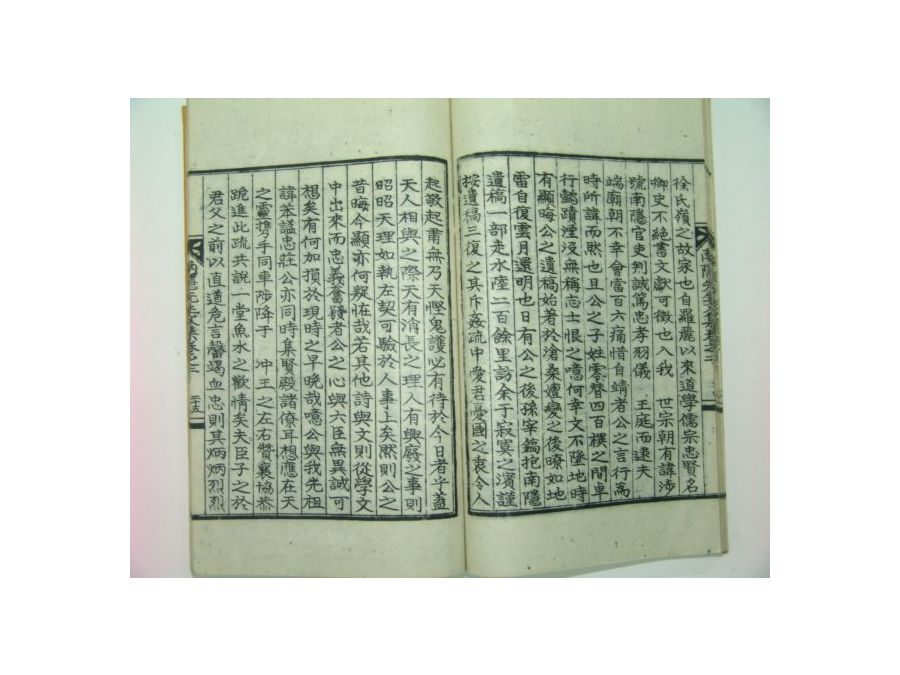 徐氏嶺之故家也自羅麗以來道學儒宗忠賢名
卿史不絶書文獻可徵也入我 世宗朝有諱涉
號南隱官吏判誠篤忠孝羽儀 王庭而逮夫
端廟朝不幸會當百六痛惜自靖者公之言行爲
時所諱而然也且公之子姓零替四百禩之間卓
行懿蹟湮沒無稱志士恨之噫何幸文不墜地時
有顯晦公之遺稿始著於滄桑嬗變之後暸如地
雷自復雲月還明也日有公之後孫宰鎬抱南隱
遺稿一部走水陸二百餘里訪余于寂寞之濱謹
按遺稿三復之其斥姦疏中愛君憂國之衷令人
起敬起肅無乃天慳鬼護必有待於今日者乎蓋
天人相與之際天有消長之理人有興廢之事則
昭昭天理如執左契可驗於人事上矣然則公之
昔晦今顯亦何疑恠哉若其他詩與文則從學文
中出來而忠義奮發者公之心與六臣無異誠可
想矣有何加損於現時之早晩哉噫公與我先祖
諱苯諡忠莊公亦同時集賢殿諸僚耳想應在天
之靈携手同車陟降于 冲王之左右贊襄協恭
跪進此疏共說一堂魚水之歡情矣夫臣子之於
君父之前以直道危言罄竭血忠則其炳炳烈烈